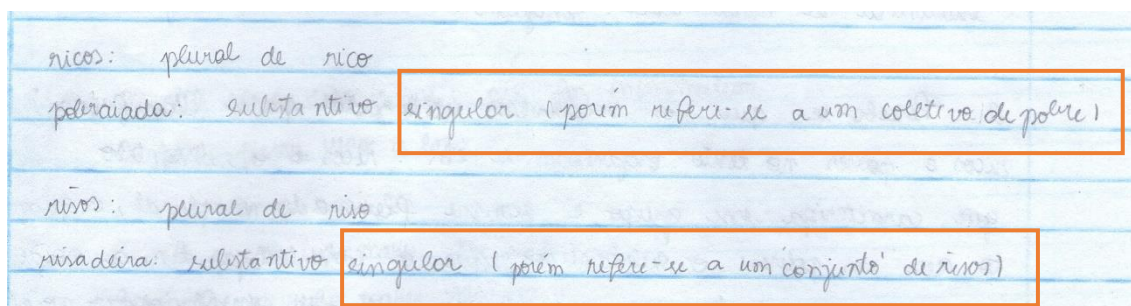 ricos: plural de rico
pobraiada: substantivo singular (porém refere-se a um coletivo de pobre)
risos: plural de riso
risadeira: substantivo singular (porém refere-se a um conjunto de risos)